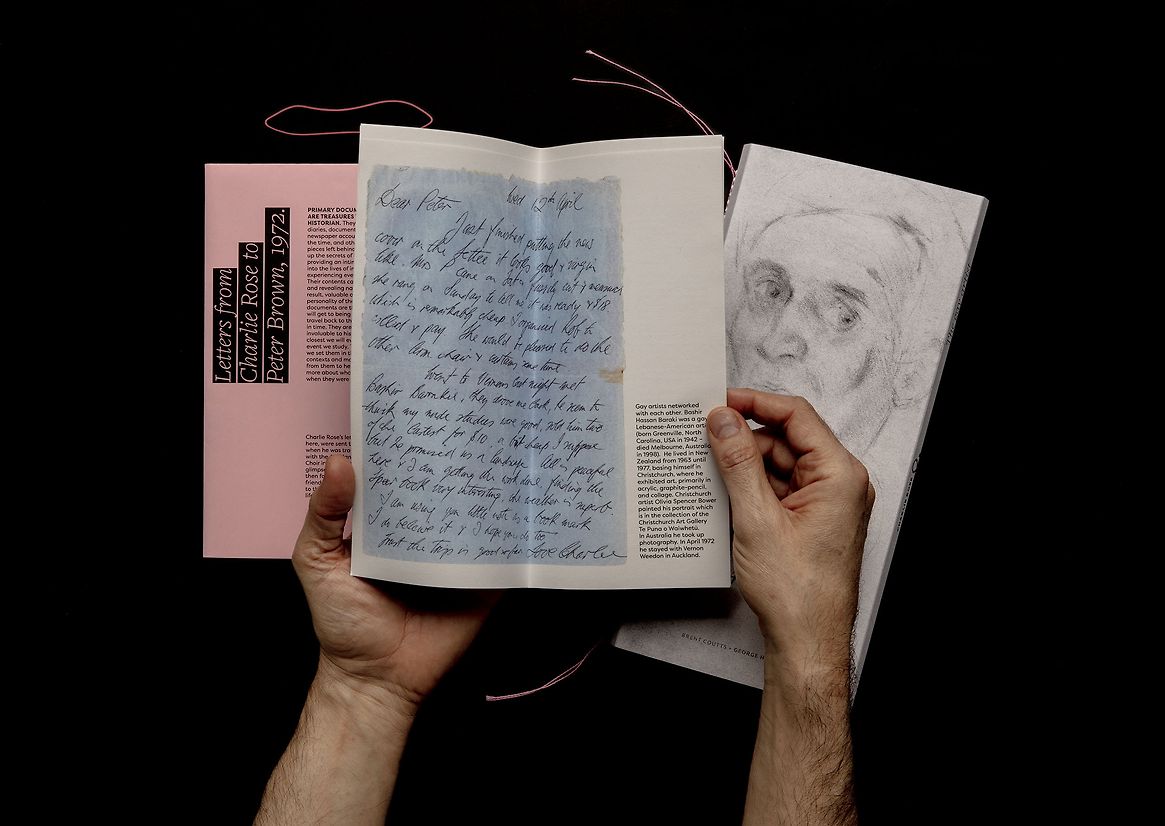 Letters from
Charlie Rose to
Peter Brown, 1972.
PRIMARY DOCUM
ARE TREASURES
HISTORIAN. They
diaries, document
newspaper accou
the time, and oth
pieces left behind
up the secrets of
providing an intim
into the lives of in
experiencing eve
Their contents ca
and revealing
result, valuable c
personality of the
documents are t
will get to being
travel back to th
in time. They are
invaluable to his
closest we will e
event we study.
we set them in t
contexts and mo
from them to he
more about who
when they were
Charlie Rose's let
here, were sent t
when he was tra
with the
Choir in
then fo
friend
to th
Dear Peter Wed 12th April
Just finished putting the new
cover on the settee it looks good & virgin
like. Mrs P came on
she rang on Sunday to tell me it was ready & $18
which is remarkably cheap I organised Rolf to
collect & pay She would be pleased to do the
other arm chair & curtains some time
Went to Vernons last night met
Bashir Baraki, they drove me back, he seem to
think my nude studies were good, sold him two
of the Cutest for $10, a bit cheap I suppose
but he promised me a landscape All is peaceful
here & I am getting the work done, finding the
Spear book very interesting, the weather is superb.
I am using your little note as a book mark
I am believe it & I hope you do too
Trust the Trip is good so far Love Charlie
Gay artists networked
with each other. Bashir
Hassan Baraki was a gay
Lebanese-American arti
(born Greenville, North
Carolina, USA in 1942 –
died Melbourne, Australia
in 1998). He lived in New
Zealand from 1963 until
1977, basing himself in
Christchurch, where he
exhibited art, primarily in
acrylic, graphite-pencil,
and collage. Christchurch
artist Olivia Spencer Bower
painted his portrait which
is in the collection of the
Christchurch Art Gallery
Te Puna o Waiwhetū.
In Australia he took up
photography. In April 1972
he stayed with Vernon
Weedon in Auckland.
BRENT COUTTS + GEORGE H